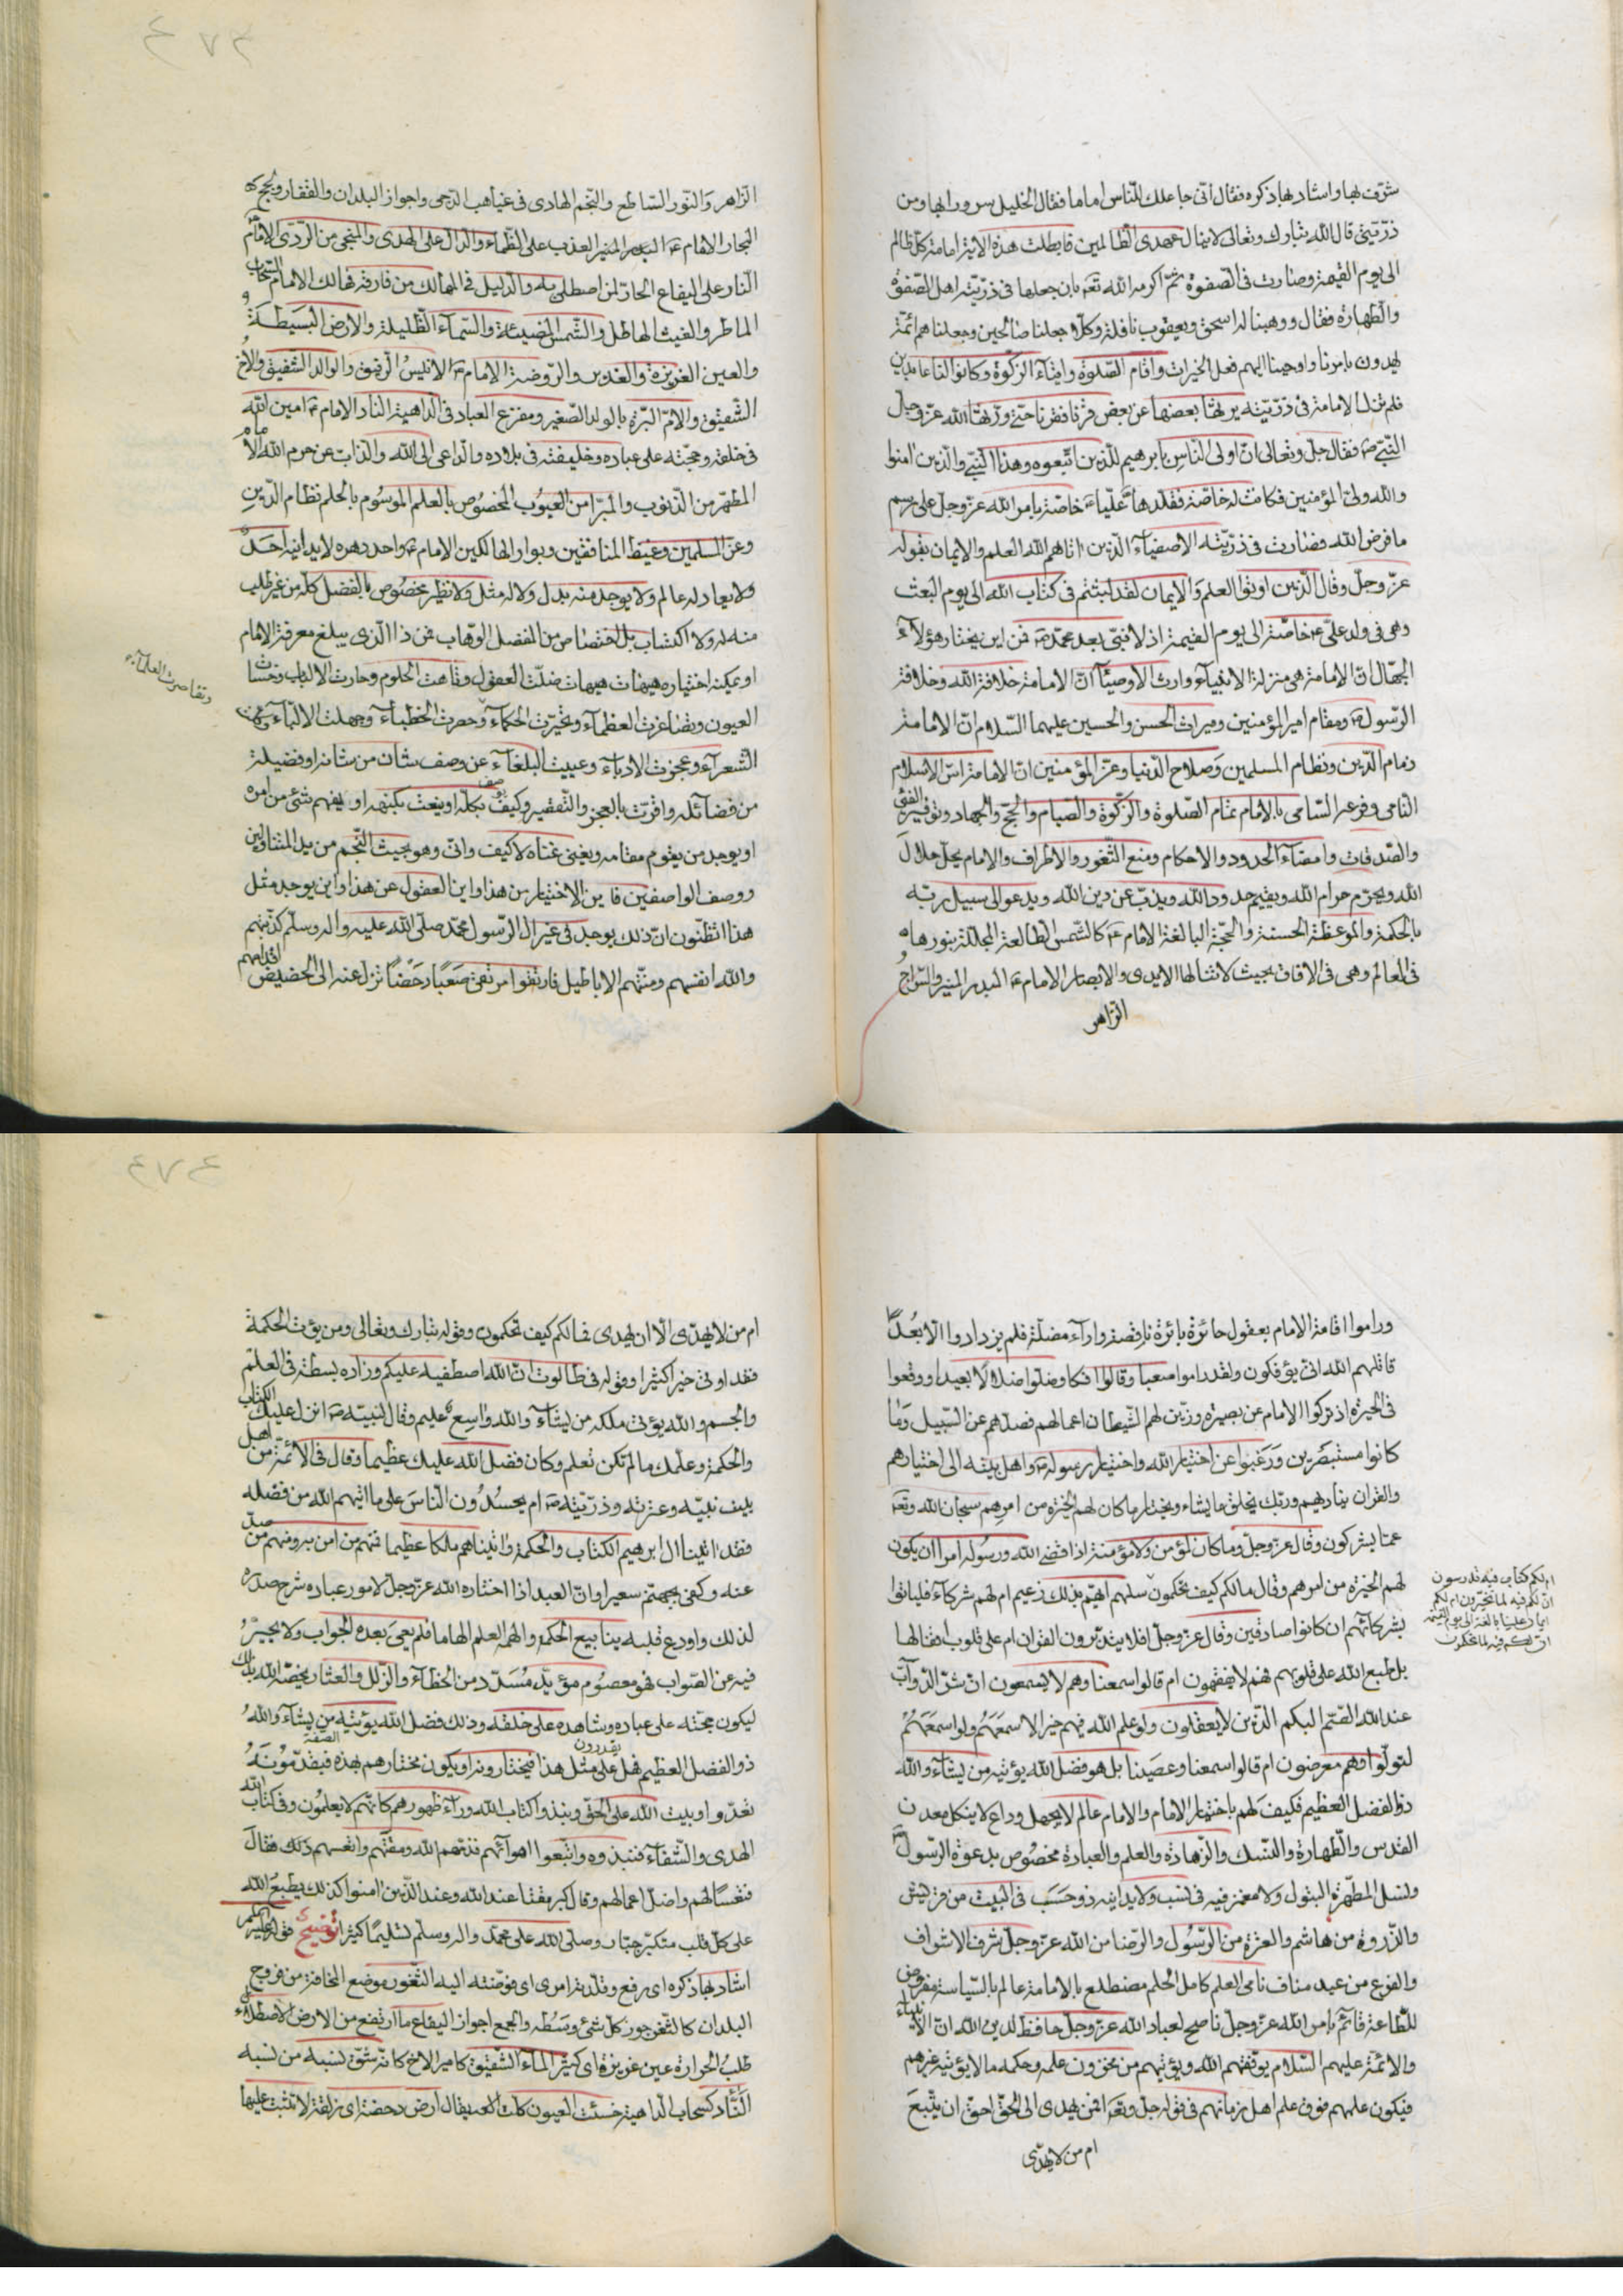 شرّفه بها واشاد بها ذكره فقال انّى جاعلك للنّاس اماما فقال الخليل سرورا بها ومن
ذرّيّتى قال الله تبارك وتعالى لا ينال عهدى الظّالمين فابطلت هذه الاية امامة كلّ ظالم
الى يوم القيمة وصارت فى الصّفوة ثمّ اكرمه الله تعه بان جعلها فى ذرّيّته اهل الصّفوة
والطّهارة فقال ووهبنا له اسحق ويعقوب نافلة وكلّا جعلنا صالحين وجعلناهم ائمّة
يهدون بامرنا واوحينا اليهم فعل الخيرات واقام الصّلوة وايتاء الزّكوة وكانوا لنا عابدين
فلم تزل الامامة فى ذرّيّته يرثها بعضها عن بعض قرنا فقرنا حتّى ورثها الله عزّ وجلّ
النّبىّ ص فقال جلّ وتعالى انّ اولى النّاس بابرهيم للّذين اتّبعوه وهذا النّبىّ والّذين امنوا
والله ولىّ المؤمنين فكانت له خاصّة فقلّدها عليّا ع خاصّة بامر الله عزّ وجلّ على رسم
ما فرض الله فصارت فى ذرّيّته الاصفياء الّذين اتاهم الله العلم والايمان بقوله
عزّ وجلّ وقال الّذين اوتوا العلم والايمان لقد لبثتم فى كتاب الله الى يوم البعث
وهى فى ولد علىّ ع خاصّة الى يوم القيمة اذ لا نبىّ بعد محمّد ص فمن اين يختار هؤلاء
الجهّال انّ الامامة هى منزلة الانبياء وارث الاوصياء انّ الامامة خلافة الله وخلافة
الرّسول ص ومقام امير المؤمنين وميراث الحسن والحسين عليهما السّلام انّ الامامة
زمام الدّين ونظام المسلمين وصلاح الدّنيا وعزّ المؤمنين انّ الامامة اسّ الاسلام
النّامى وفرعه السّامى بالامام تمام الصّلوة والزّكوة والصّيام والحجّ والجهاد وتوفير الفىء
والصّدقات وامضاء الحدود والاحكام ومنع الثّغور والاطراف والامام يحلّ حلال
الله ويحرّم حرام الله ويقيم حدود الله ويذبّ عن دين الله ويدعو الى سبيل ربّه
بالحكمة والموعظة الحسنة والحجّة البالغة الامام ع كالشّمس الطّالعة المجلّلة بنورها
فى العالم وهى فى الافاق بحيث لا تنالها الايدى والابصار الامام ع البدر المنير والسّراج
الزّاهر
الزّاهر والنّور السّاطع والنّجم الهادى فى غياهب الدّجى واجواز البلدان والقفار ولجج
البحار الامام ع الماء العذب على الظّماء والدّالّ على الهدى والمنجى من الرّدى الامام
النّار على اليفاع الحارّ لمن اصطلى به والدّليل فى المهالك من فارقه فهالك الامام السّحاب
الماطر والغيث الهاطل والشّمس المضيئة والسّماء الظّليلة والارض البسيطة
والعين الغزيرة والغدير والرّوضة الامام ع الانيس الرّفيق والوالد الشّفيق والاخ
الشّقيق والامّ البرّة بالولد الصّغير ومفزع العباد فى الدّاهية النّاد الامام ع امين الله
فى خلقه وحجّته على عباده وخليفته فى بلاده والدّاعى الى الله والذّابّ عن حرم الله الامام
المطهّر من الذّنوب والمبرّا من العيوب المخصوص بالعلم الموسوم بالحلم نظام الدّين
وعزّ المسلمين وغيظ المنافقين وبوار الهالكين الامام ع واحد دهره لا يدانيه احد
ولا يعادله عالم ولا يوجد منه بدل ولا له مثل ولا نظير مخصوص بالفضل كلّه من غير طلب
منه له ولا اكتساب بل اختصاص من المفضل الوهّاب فمن ذا الّذى يبلغ معرفة الامام
او يمكنه اختياره هيهات هيهات ضلّت العقول وتاهت الحلوم وحارت الالباب وخسئت
العيون وتصاغرت العظماء وتحيّرت الحكماء وحصرت الخطباء وجهلت الالبّاء وكلّت
وتقاصرت العلماء
الشّعراء وعجزت الادباء وعييت البلغاء عن وصف شان من شانه او فضيلة
من فضائله واقرّت بالعجز والتّقصير وكيف يوصف بكلّه او ينعت بكنهه او يفهم شئ من امره
او يوجد من يقوم مقامه ويغنى غناه لا كيف وانّى وهو بحيث النّجم من يد المتناولين
ووصف الواصفين فاين الاختيار من هذا واين العقول عن هذا واين يوجد مثل
هذا اتظنّون انّ ذلك يوجد فى غير ال الرّسول محمّد صلّى الله عليه واله وسلّم كذبتهم
والله انفسهم ومنّتهم الاباطيل فارتقوا مرتقى صعبا دحضا تزلّ عنه الى الحضيض اقدامهم
وراموا اقامة الامام بعقول حائرة بائرة ناقصة واراء مضلّة فلم يزدادوا الّا بعدا
قاتلهم الله انّى يؤفكون ولقد راموا صعبا وقالوا افكا وضلّوا ضلالا بعيدا ووقعوا
فى الحيرة اذ تركوا الامام عن بصيرة وزيّن لهم الشّيطان اعمالهم فصدّهم عن السّبيل وما
كانوا مستبصرين ورغبوا عن اختيار الله واختيار رسوله ص واهل بيته الى اختيارهم
والقران يناديهم وربّك يخلق ما يشاء ويختار ما كان لهم الخيرة من امرهم سبحان الله وتعه
عمّا يشركون وقال عزّ وجلّ وما كان لمؤمن ولا مؤمنة اذا قضى الله ورسوله امرا ان يكون
لهم الخيرة من امرهم وقال مالكم كيف تحكمون سلهم ايّهم بذلك زعيم ام لهم شركاء فلياتوا
ام لكم كتاب فيه تدرسون
انّ لكم فيه لما تخيّرون ام لكم
ايمان علينا بالغة الى يوم القيمة
انّ لكم لما تحكمون
بشركائهم ان كانوا صادقين وقال عزّ وجلّ افلا يتدبّرون القران ام على قلوب اقفالها
بل طبع الله على قلوبهم فهم لا يفقهون ام قالوا سمعنا وهم لا يسمعون انّ شرّ الدّوابّ
عند الله الصّمّ البكم الّذين لا يعقلون ولو علم الله فيهم خيرا لاسمعهم ولو اسمعهم
لتولّوا وهم معرضون ام قالوا سمعنا وعصينا بل هو فضل الله يؤتيه من يشاء والله
ذو الفضل العظيم فكيف لهم باختيار الامام والامام عالم لا يجهل وداع لا ينكل معدن
القدس والطّهارة والنّسك والزّهادة والعلم والعبادة مخصوص بدعوة الرّسول
ونسل المطهّرة البتول ولا مغمز فيه فى نسب ولا يدانيه ذو حسب فى البيت من قريش
والذّروة من هاشم والعترة من الرّسول والرّضا من الله عزّ وجلّ شرف الاشراف
والفرع من عبد مناف نامى العلم كامل الحلم مضطلع بالامامة عالم بالسّياسة مفروض
للطّاعة قائم بامر الله عزّ وجلّ ناصح لعباد الله عزّ وجلّ حافظ لدين الله انّ الانبياء
والائمّة عليهم السّلام يوفّقهم الله ويؤتيهم من مخزون علمه وحكمه ما لا يؤتيه غيرهم
فيكون علمهم فوق علم اهل زمانهم فى قوله جلّ وتعه افمن يهدى الى الحقّ احقّ ان يتّبع
ام من لا يهدّى
ام من لا يهدّى الّا ان يهدى فمالكم كيف تحكمون وقوله تبارك وتعالى ومن يؤت الحكمة
فقد اوتى خيرا كثيرا وقوله فى طالوت انّ الله اصطفيه عليكم وزاده بسطة فى العلم
والجسم والله يؤتى ملكه من يشاء والله واسع عليم وقال لنبيّه ص انزل عليك الكتاب
والحكمة وعلّمك ما لم تكن تعلم وكان فضل الله عليك عظيما وقال فى الائمّة من اهل
بيت نبيّه وعترته وذرّيّته ص ام يحسدون النّاس على ما اتيهم الله من فضله
فقد اتينا ال ابرهيم الكتاب والحكمة واتيناهم ملكا عظيما فمنهم من امن به ومنهم من صدّ
عنه وكفى بجهنّم سعيرا وانّ العبد اذا اختاره الله عزّ وجلّ لامور عباده شرح صدره
لذلك واودع قلبه ينابيع الحكمة والهمه العلم الهاما فلم يعى بعده الجواب ولا يحير
فيه عن الصّواب فهو معصوم مؤيّد مسدّد من الخطاء والزّلل والعثار يخصّه الله بذلك
ليكون حجّته على عباده وشاهده على خلقه وذلك فضل الله يؤتيه من يشاء والله
ذو الفضل العظيم فهل يقدرون على مثل هذا فيختارونه او يكون مختارهم بهذه الصّفة فيقدّمونه
تعدّوا وبيت الله على الحقّ ونبذوا كتاب الله وراء ظهورهم كانّهم لا يعلمون وفى كتاب الله
الهدى والشّفاء فنبذوه واتّبعوا اهوائهم فذمّهم الله ومقّتهم واتعسهم ذلك فقال
فتعسا لهم واضلّ اعمالهم وقال كبر مقتا عند الله وعند الّذين امنوا كذلك يطبع الله
على كلّ قلب متكبّر جبّار وصلّى الله على محمّد واله وسلّم تسليما كثيرا توضيح قوله عليه السّلم
اشاد بها ذكره اى رفع وقلّدته امرى اى فوّضته اليه الثّغور موضع المخافة من فروج
البلدان كالثّغر جوز كلّ شئ وسطه والجمع اجواز اليفاع ما ارتفع من الارض الاصطلاء
طلب الحرارة عين غزيرة اى كثير الماء الشّقيق كامير الاخ كانّه شقّ نسبه من نسبه
النّآد كسحاب الدّاهية خسئت العيون كلّت يقال ارض دحضة اى زلقة لا تثبت عليها